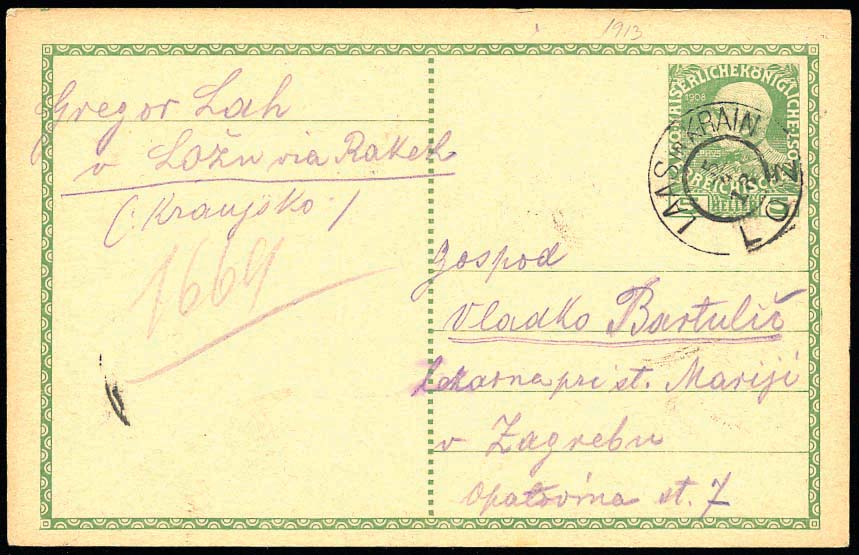 1913
Gregor Lah
v Ložu via Rakek
(: Kranjsko :)
1669
KAISERLICHE KÖNIGLICHE
1908
HELLER
LAAS in KRAIN
LOŽ
Gospod
Vladko Bartulić
Lekarna pri st. Mariji
v Zagrebu
Opatovina st. 7